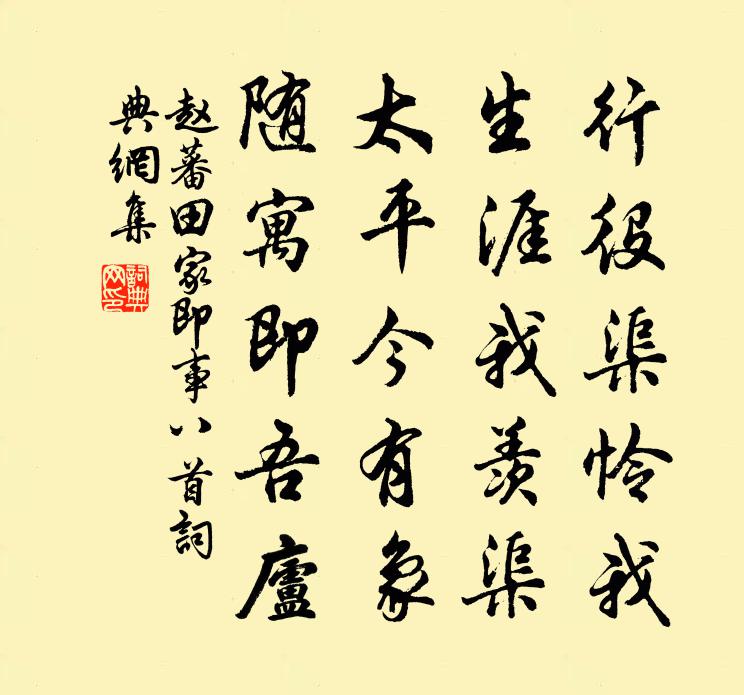 行役渠怜我
生涯我羡渠
太平今有象
随寓即吾廬
赵蕃田家即事八首詞
典網集
詞典网印